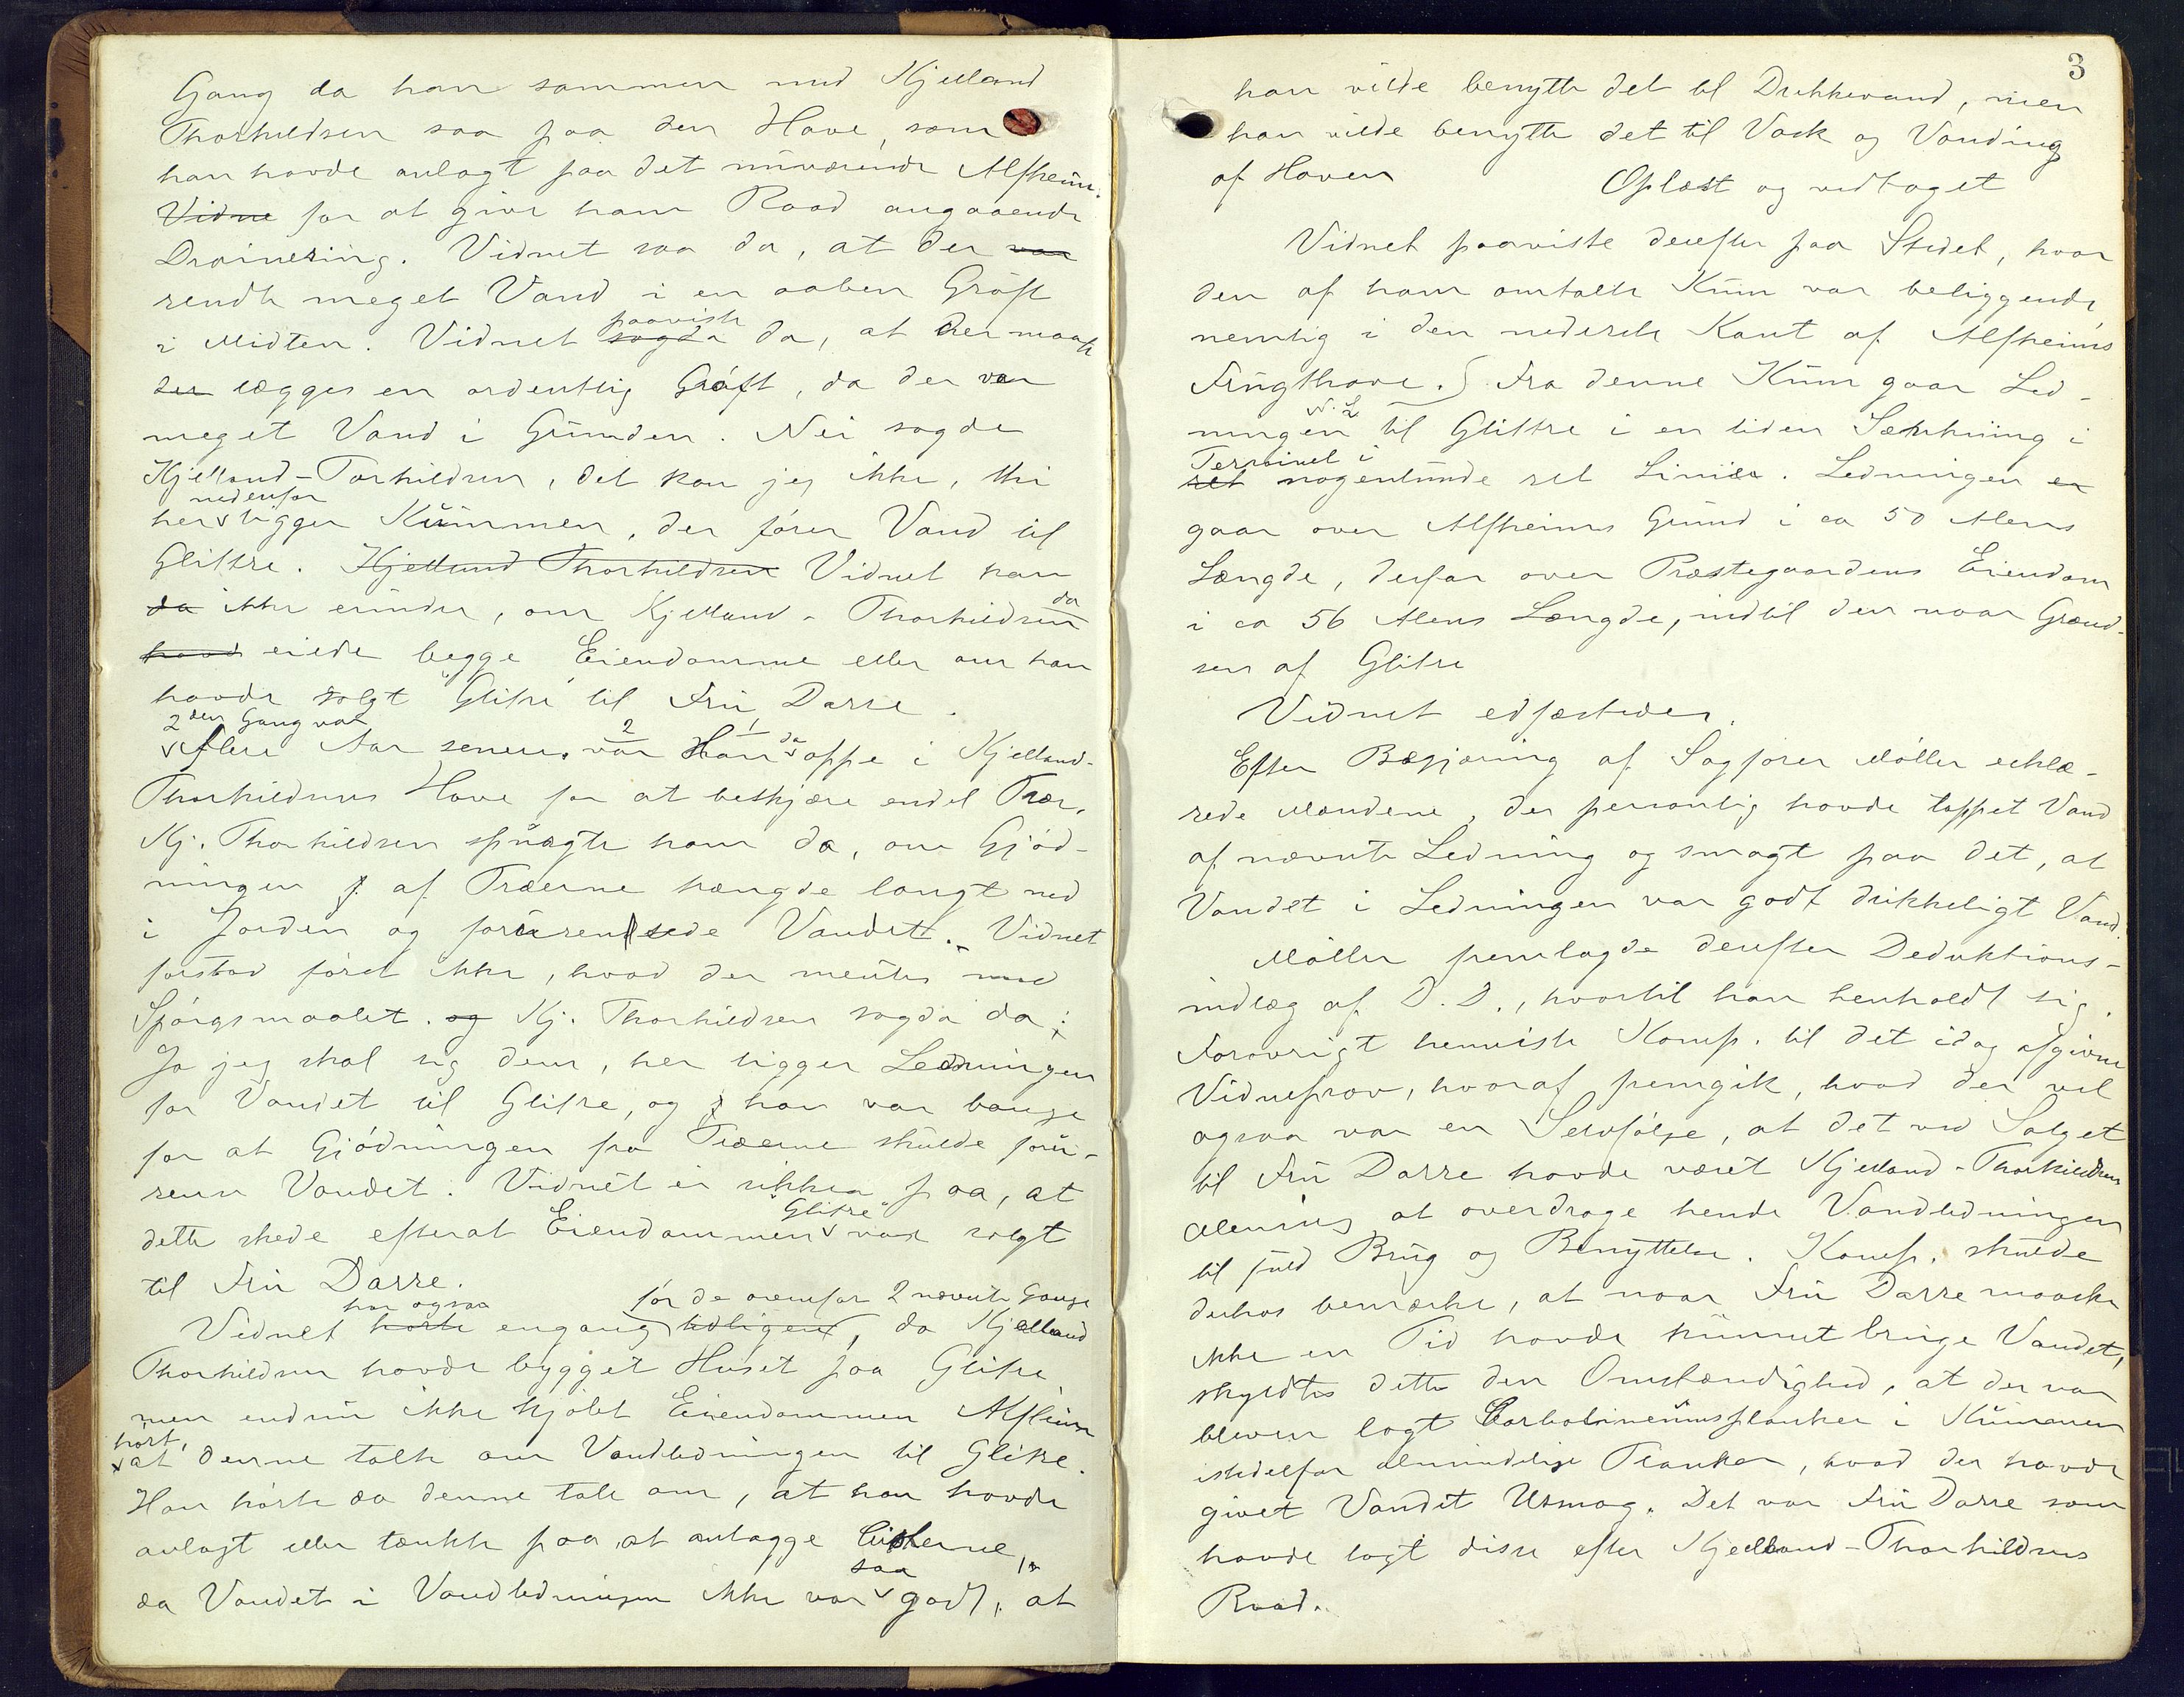 Gang da han sammen med Kjelland
Thorkildsen saa paa den Have, som
han havde anlagt paa det nuværende Alfheim.
Vidne for at give ham Raad angaaende
Drainering. Vidnet saa da, at der var
rendte meget Vand i en aaben Grøft
paaviste
i Midten. Vidnet sagde da, at der maatte
der lægges en ordentlig Grøft, da der var
meget Vand i Grunden. Nei sagde
Kjelland-Torkildsen, det kan jeg ikke, thi
nedenfor
her ligger Kummen, der fører Vand til
Glittre. Kjelland Thorkildsen Vidnet kan
da
da ikke erindre, om Kjelland-Thorkildsen
havd eiede begge Eiendomme eller om han
havde solgt "Glitre" til Fru Darre.
2den Gang var
Flere Aar senere. var Han da oppe i Kjelland-
Thorkildsens Have for at beskjære endel Trær,
Kj. Thorkildsen spurgte ham da, om Gjød-
ningen f af Træerne hængde langt ned
i Jorden og forurensede Vandet. Vidnet
forstod først ikke, hvad der mentes med
Spørgsmaalet. og Kj. Thorkildsen sagde da:
Ja jeg skal sig dem, her ligger Ledningen
for Vandet til Glitre, og han var bange
for at Gjødningen fra Træerne skulde foru-
rense Vandet. Vidnet er sikker paa, at
"Glitre"
dette skede efterat Eiendommen var solgt
til Fru Darre.
har ogsaa før de ovenfor 2 nævnte Gange
Vidnet hørte engang tidligere, da Kjelland
Thorkildsen havde bygget Huset paa Glitre
men endnu ikke kjøbt Eiendommen Alfheim
hørt,
at denne talte om Vandledningen til Glitre.
Han hørte da denne tale om, at han havde
anlagt eller tænkte paa at anlægge Cisterne,
saa
da Vandet i Vandledningen ikke var godt, at
3
han vilde benytte det til Drikkevand, men
han vilde benytte det til Vask og Vanding
af Haven
Oplæst og vedtaget
Vidnet paaviste derefter paa Stedet, hvor
den af ham omtalte Kum var beliggende,
nemlig i den nederste Kant af Alfheims
Frugthave. Fra denne Kum gaar Led-
ningen til Glittre i en liden Sænkning i
Terrainet i
ret nogenlunde ret Linie. Ledningen er
gaar over Alfheims Grund i ca 50 Alens
Længde, derfor over Præstegaardens Eiendom
i ca 56 Alens Længde, indtil den naar Grænd-
sen af Glitre
Vidnet edfæstedes.
Efter Begjæring af Sagfører Møller erklæ-
rede Mændene, der personlig havde tappet Vand
af nævnte Ledning og smagt paa det, at
Vandet i Ledningen var godt drikkeligt Vand.
Møller fremlagde derefter Deduktions-
indlæg af D. D., hvortil han henholdt sig.
Forøvrigt henviste Komp. til det idag afgivne
Vidneprov, hvoraf fremgik, hvad der vel
ogsaa var en Selvfølge, at det ved Salget
til Fru Darre havde været Kjelland-Thorkildsens
Mening at overdrage hende Vandledningen
til fuld Brug og Benyttelse. Komp. skulde
derhos bemærke, at naar Fru Darre maaske
ikke en Tid havde kunnet bruge Vandet,
skyldtes dette den Omstændighed, at der var
bleven lagt Carbolineumsplanker i Kummen
istedetfor almindelige Planker, hvad der havde
givet Vandet Usmag. Det var Fru Darre som
havde lagt disse efter Kjelland-Thorkildsens
Raad.